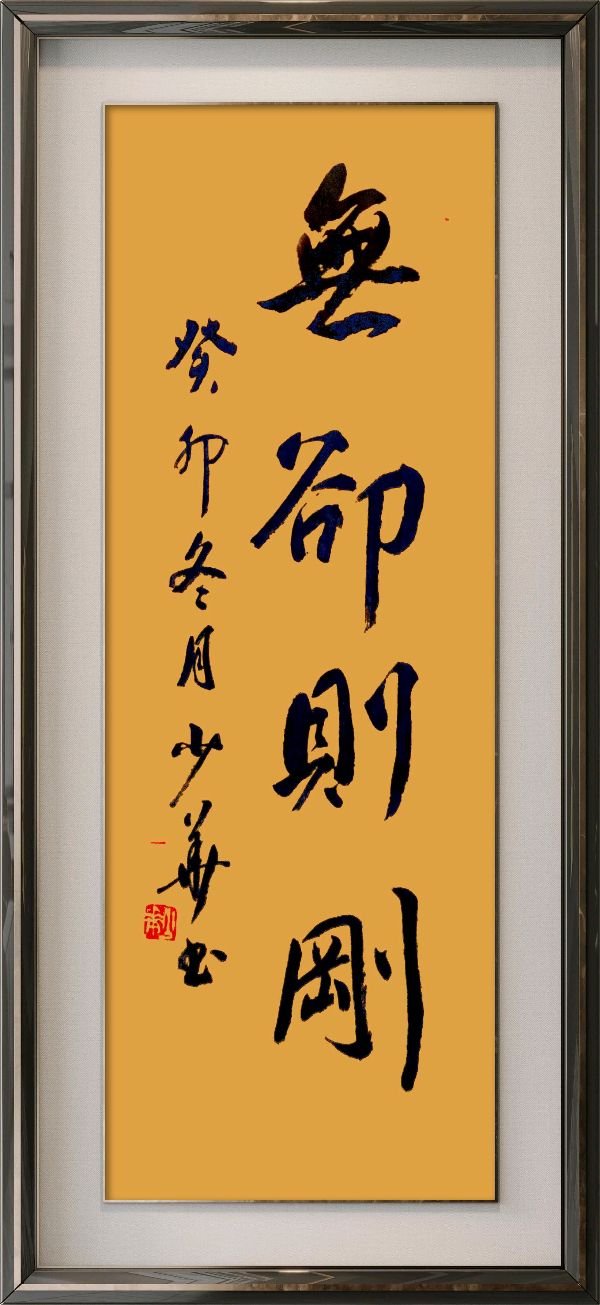 無卻則剛
癸卯冬月少華书